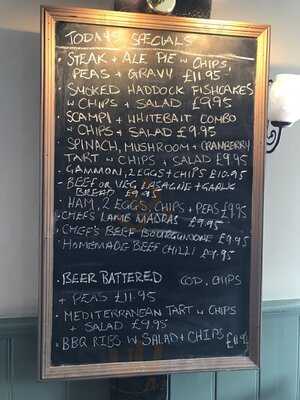 TODAYS SPECIALS
· STEAK + ALE PIE W CHIPS,
PEAS + GRAVY £11.95
· SMOKED HADDOCK FISHCAKES
W CHIPS + SALAD £9.95
· SCAMPI + WHITEBAIT COMBO
W CHIPS + SALAD £9.95
· SPINACH, MUSHROOM + CRANBERRY
TART W CHIPS + SALAD £9.95
· GAMMON, 2 EGGS + CHIPS £10.95
· BEEF OR VEG LASAGNE + GARLIC
BREAD £9.95
· HAM, 2 EGGS, CHIPS + PEAS £9.95
· CHEF'S LAMB MADRAS £9.95
· CHEF'S BEEF BOURGUIGNONE £9.95
· HOMEMADE BEEF CHILLI £9.95
· BEER BATTERED COD, CHIPS
+ PEAS £11.95
· MEDITERRANEAN TART W CHIPS
+ SALAD £9.95
· BBQ RIBS W SALAD + CHIPS